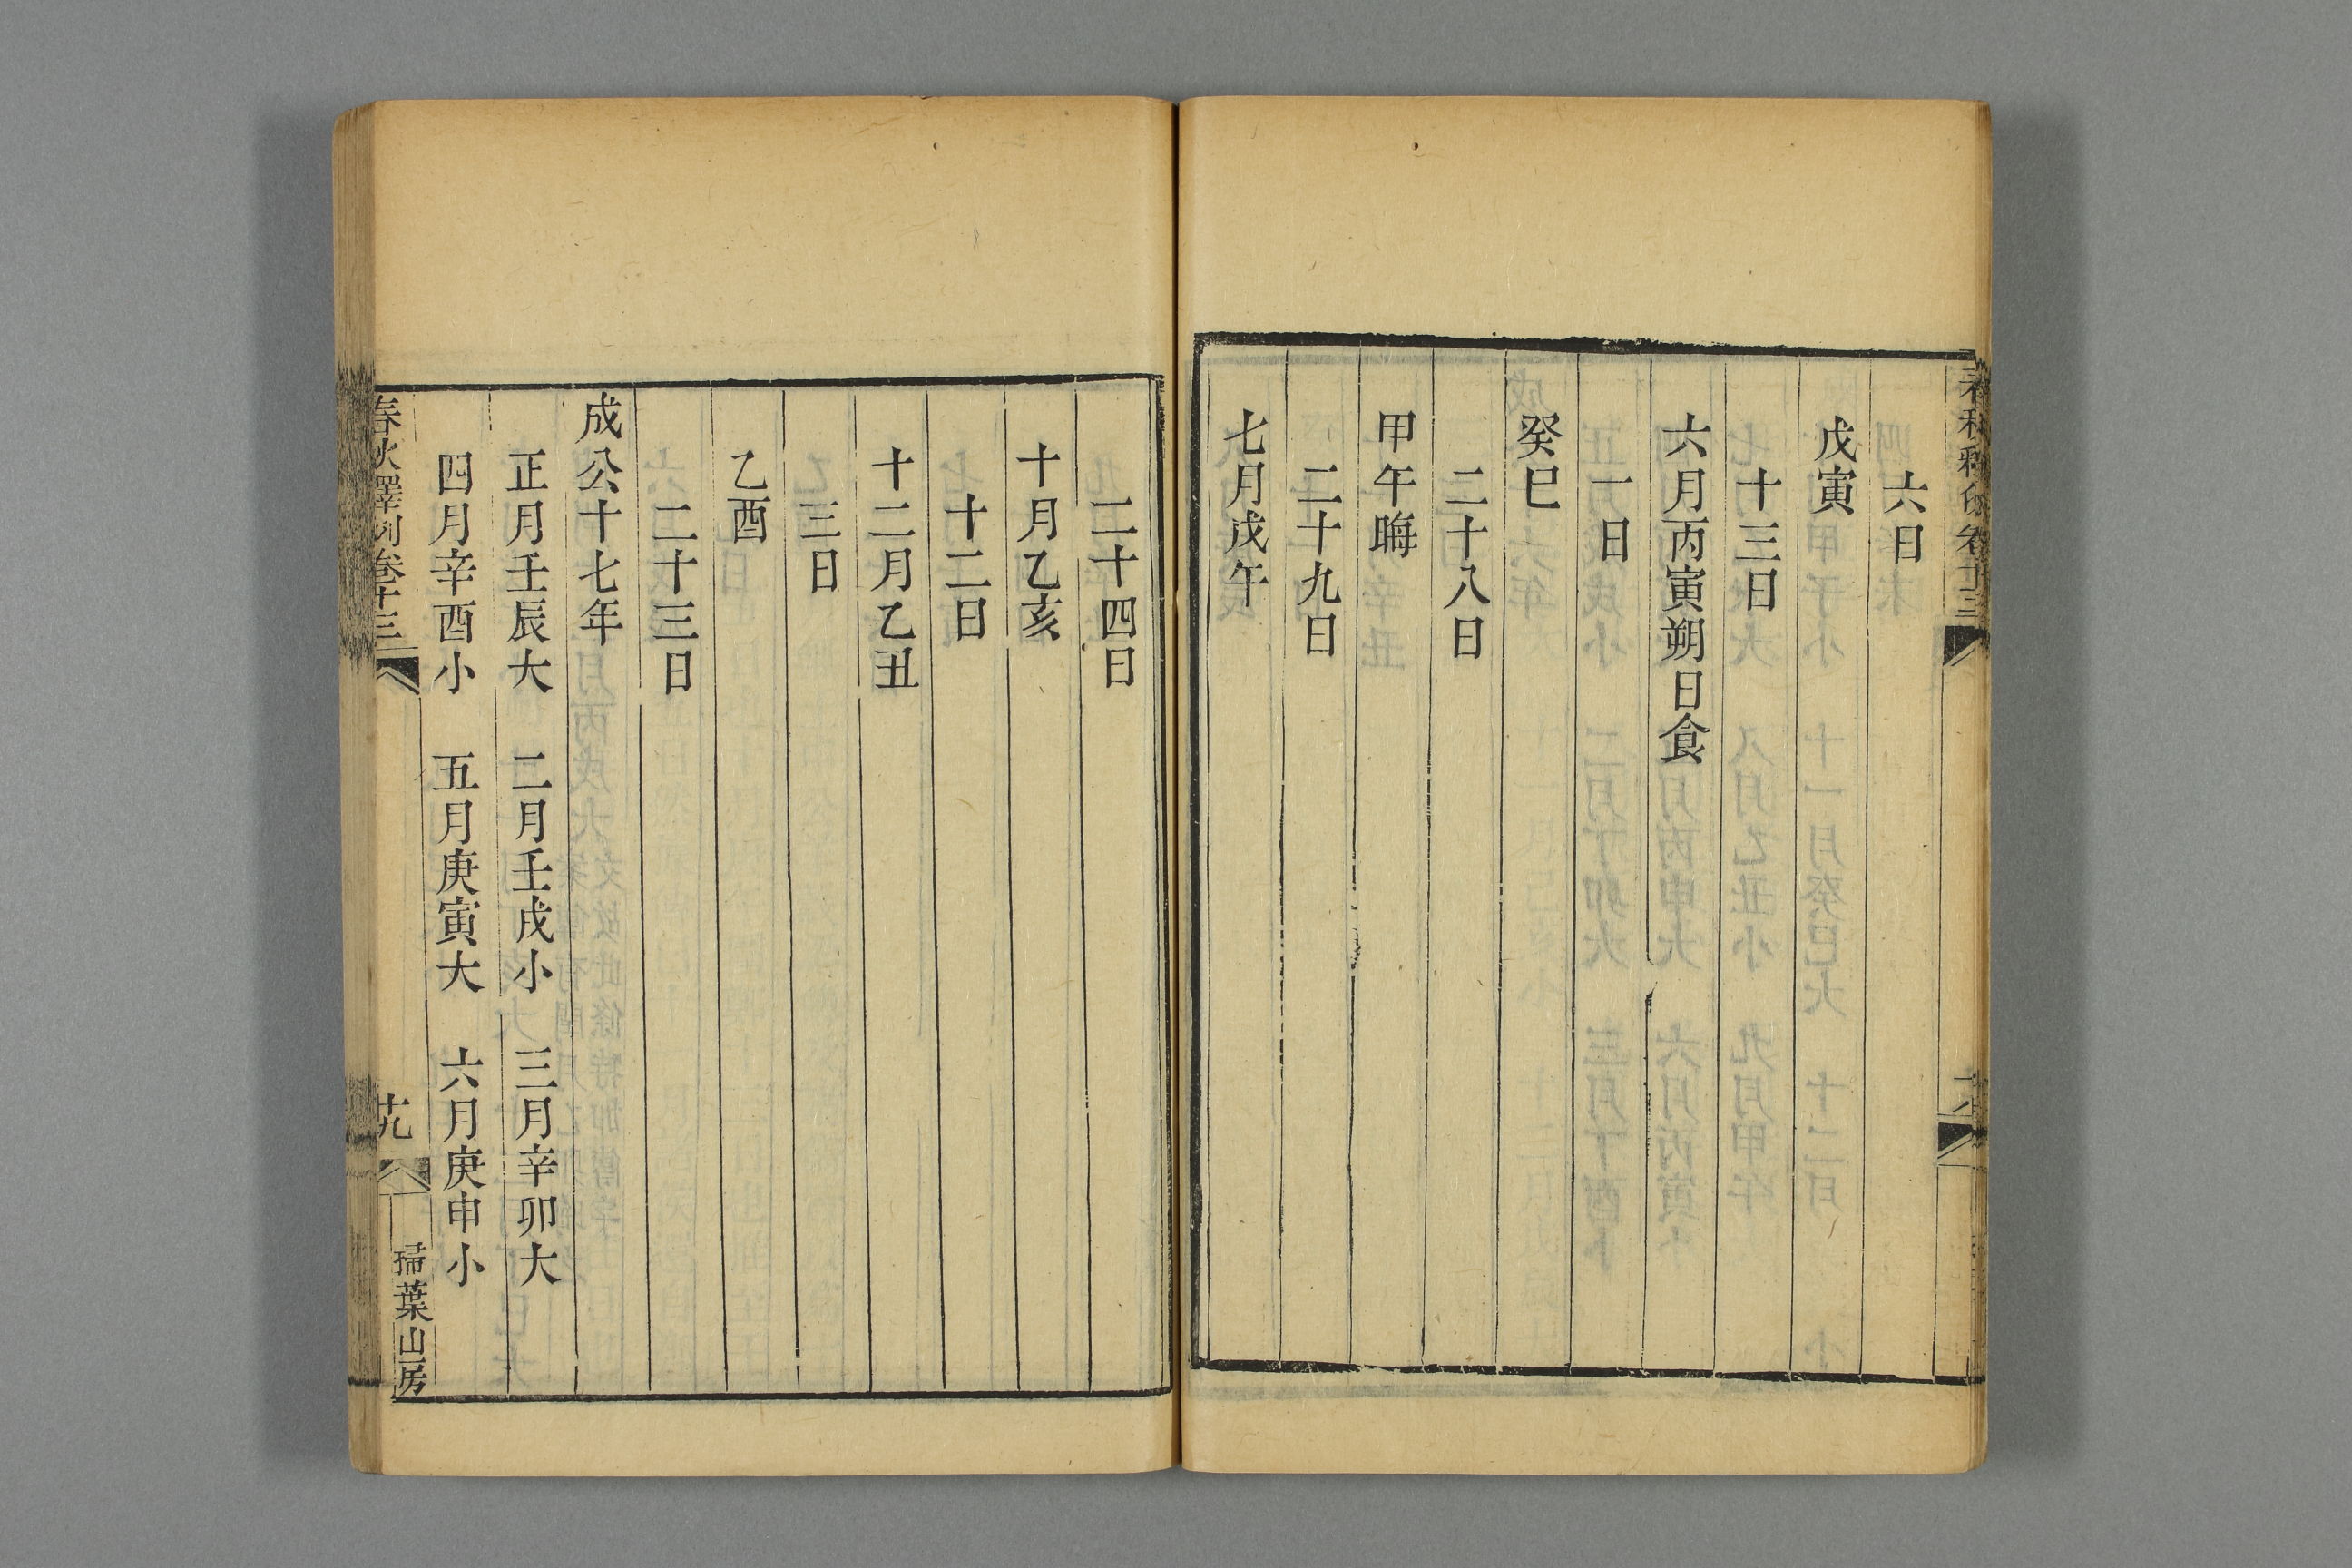 六日
戊寅
十三日
六月丙寅朔日食
一日
癸巳
二十八日
甲午晦
二十九日
七月戊午
二十四日
十月乙亥
十二日
十二月乙丑
三日
乙酉
二十三日
成公十七年
正月壬辰大 二月壬戌小 三月辛卯大
四月辛酉小 五月庚寅大 六月庚申小
春秋釋例卷十三 十九 掃葉山房